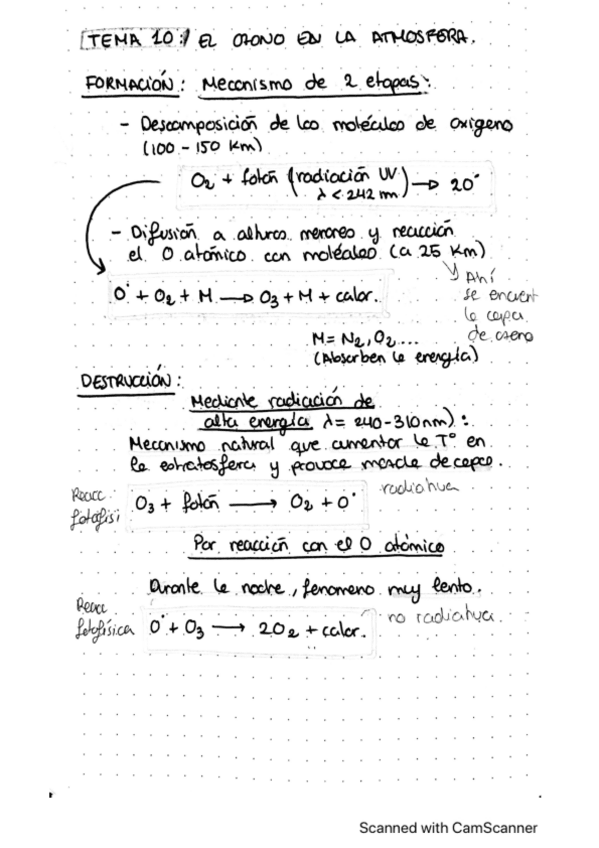 TEMA 10: EL OZONO EN LA ATMOSFERA.
FORMACIÓN: Mecanismo de 2 etapas:
- Descomposición de las moléculas de oxígeno
(100 - 150 Km)
O₂ + fotón (radiación UV λ < 242 nm) → 2O˙
- Difusión a alturas menores y reacción
el O atómico con moléculas (a 25 Km)
Ahí
se encuent
la capa
de ozono
O˙ + O₂ + M → O₃ + M + calor.
M = N₂, O₂....
(Absorben la energía)
DESTRUCCIÓN:
Mediante radiación de
alta energía λ = 240-310nm):
Mecanismo natural que aumentar la Tº en
la estratosfera y provoca mezcla de capas.
radiativa
Reacc.
fotofísi
O₃ + fotón → O₂ + O˙
Por reacción con el O atómico
Durante la noche, fenomeno muy lento.
no radiativa.
Reacc.
fotofísica
O˙ + O₃ → 2O₂ + calor.
Scanned with CamScanner